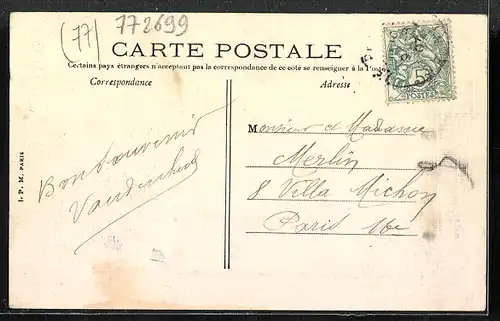 (77)
772699
CARTE POSTALE
Certains pays étrangers n'acceptant pas la correspondance de ce côté se renseigner à la Poste
Correspondance
Adresse
5
POSTES
Bon souvenir
I. P. M. PARIS
Monsieur et Madame
Merlin
8 Villa Michon
Paris 16e